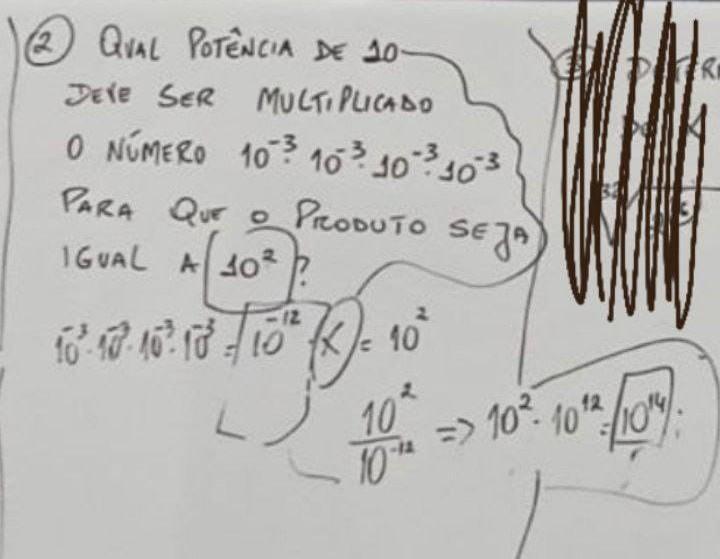 2 QUAL POTÊNCIA DE 10
DEVE SER MULTIPLICADO
O NÚMERO 10⁻³·10⁻³·10⁻³·10⁻³
PARA QUE O PRODUTO SEJA
IGUAL A 10² ?
10⁻³·10⁻³·10⁻³·10⁻³ = 10⁻¹² · X = 10²
10²/10⁻¹² => 10² · 10¹² = 10¹⁴